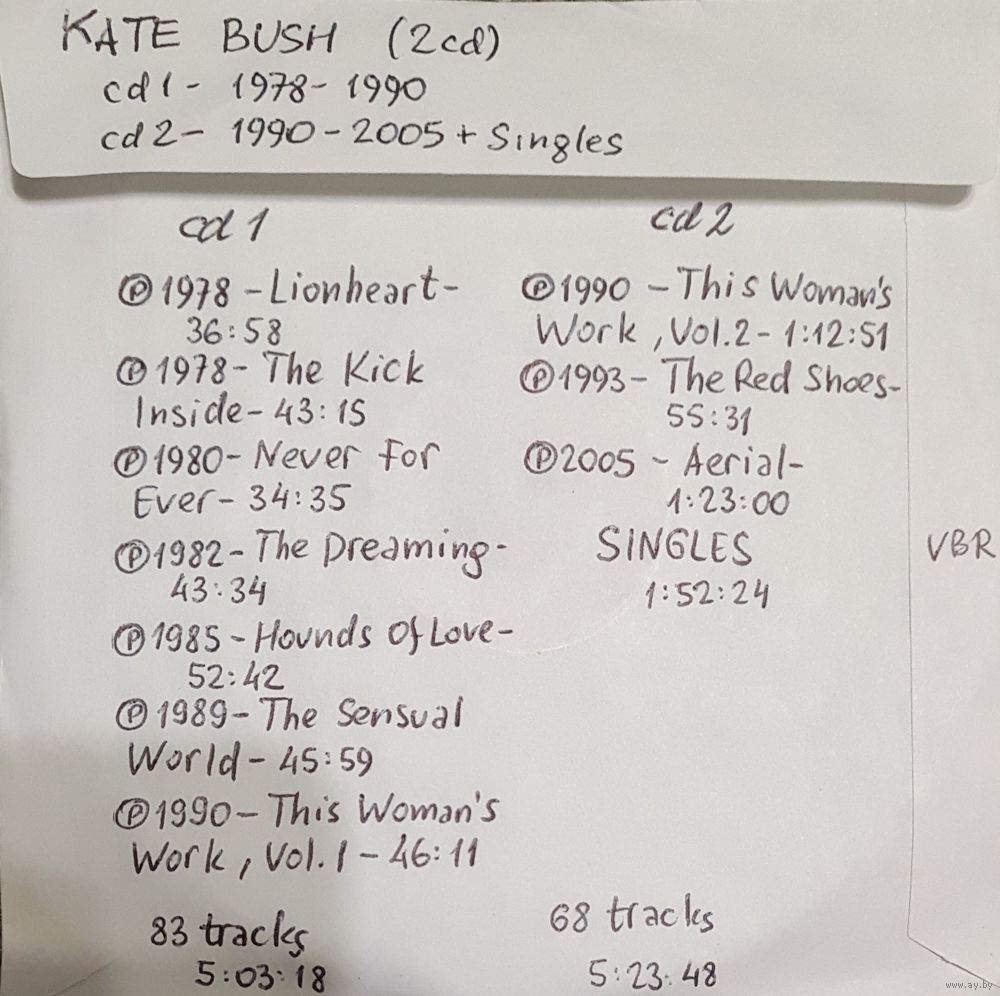 KATE BUSH (2cd)
cd1- 1978-1990
cd2- 1990-2005 + Singles
cd1
Ⓟ1978-Lionheart-
36:58
Ⓟ1978- The Kick
Inside- 43:15
Ⓟ1980- Never For
Ever- 34:35
Ⓟ1982- The Dreaming-
43:34
Ⓟ1985- Hounds Of Love-
52:42
Ⓟ1989- The Sensual
World- 45:59
Ⓟ1990- This Woman's
Work, Vol.1- 46:11
83 tracks
5:03:18
cd2
Ⓟ1990 - This Woman's
Work, Vol.2- 1:12:51
Ⓟ1993- The Red Shoes-
55:31
Ⓟ2005 - Aerial-
1:23:00
SINGLES
1:52:24
68 tracks
5:23:48
VBR
www.ay.by